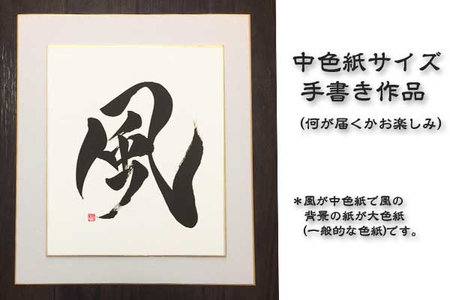 風
中色紙サイズ
手書き作品
(何が届くかお楽しみ)
＊風が中色紙で風の
背景の紙が大色紙
(一般的な色紙)です。